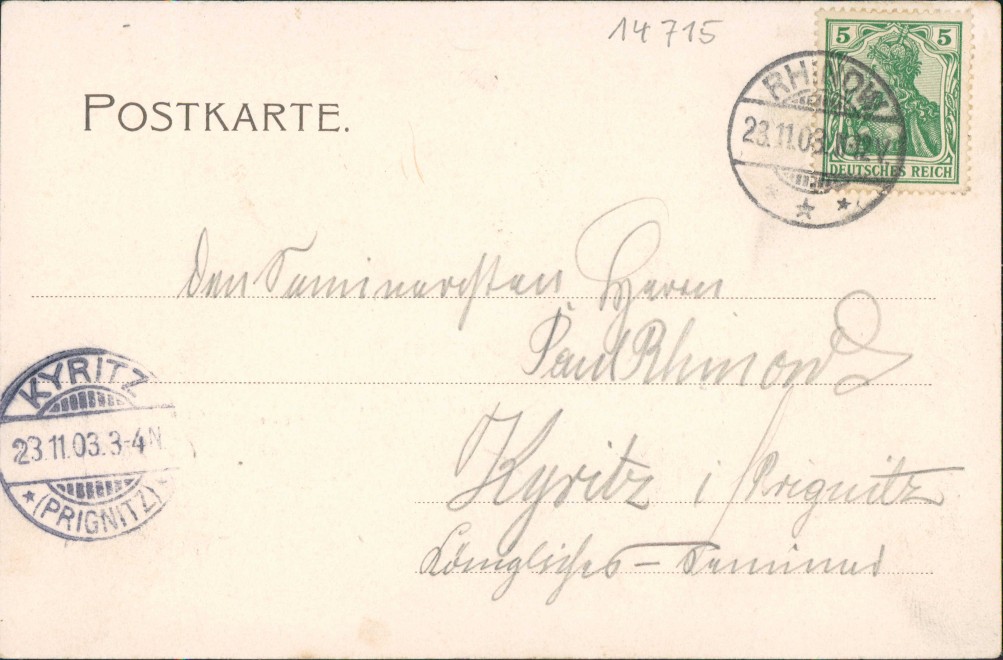 14715
POSTKARTE.
5 5
DEUTSCHES REICH
RHINOW
23.11.03. 11-12V
Den Seminaristen Herrn
Paul
Kyritz i/Prignitz
Königliches - Seminar
KYRITZ
23.11.03. 3-4N
(PRIGNITZ)